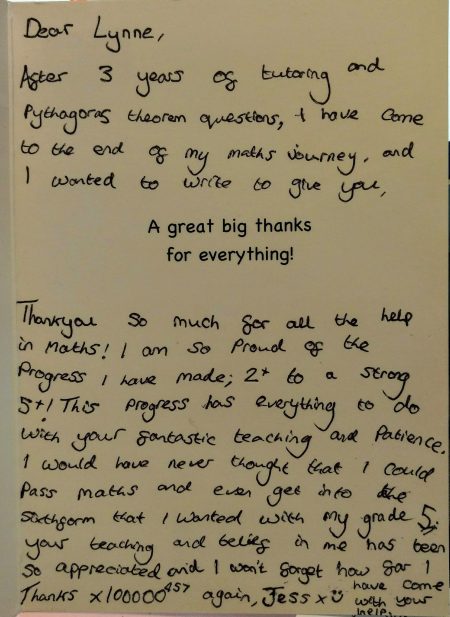 Dear Lynne,
After 3 years of tutoring and
Pythagoras theorem questions, I have come
to the end of my maths journey, and
I wanted to write to give you,
A great big thanks
for everything!
Thankyou so much for all the help
in Maths! I am so Proud of the
Progress I have made; 2+ to a strong
5+! This Progress has everything to do
with your fantastic teaching and Patience.
I would have never thought that I could
Pass maths and even get into the
sixthform that I wanted with my grade 5;
your teaching and belief in me has been
so appreciated and I won't forget how far I
have come
with your
help.
Thanks x100000⁴⁵⁷ again, Jess x☺